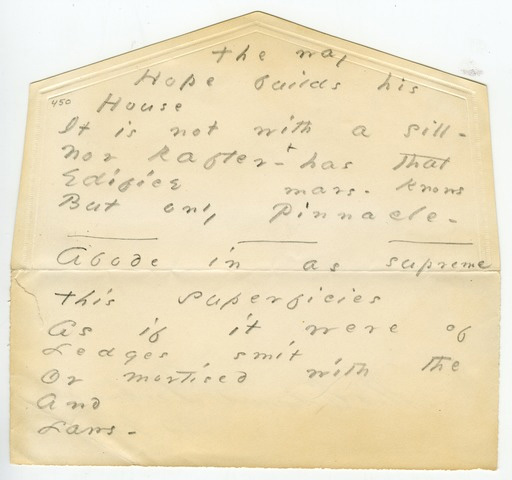 the way
Hope builds his
450
House
It is not with a sill -
Nor Rafter - + has that
Edifice mars - knows
But only Pinnacle -
Abode in as supreme
this superficies
As if it were of
Ledges smit
Or mortised with the
And
Laws -